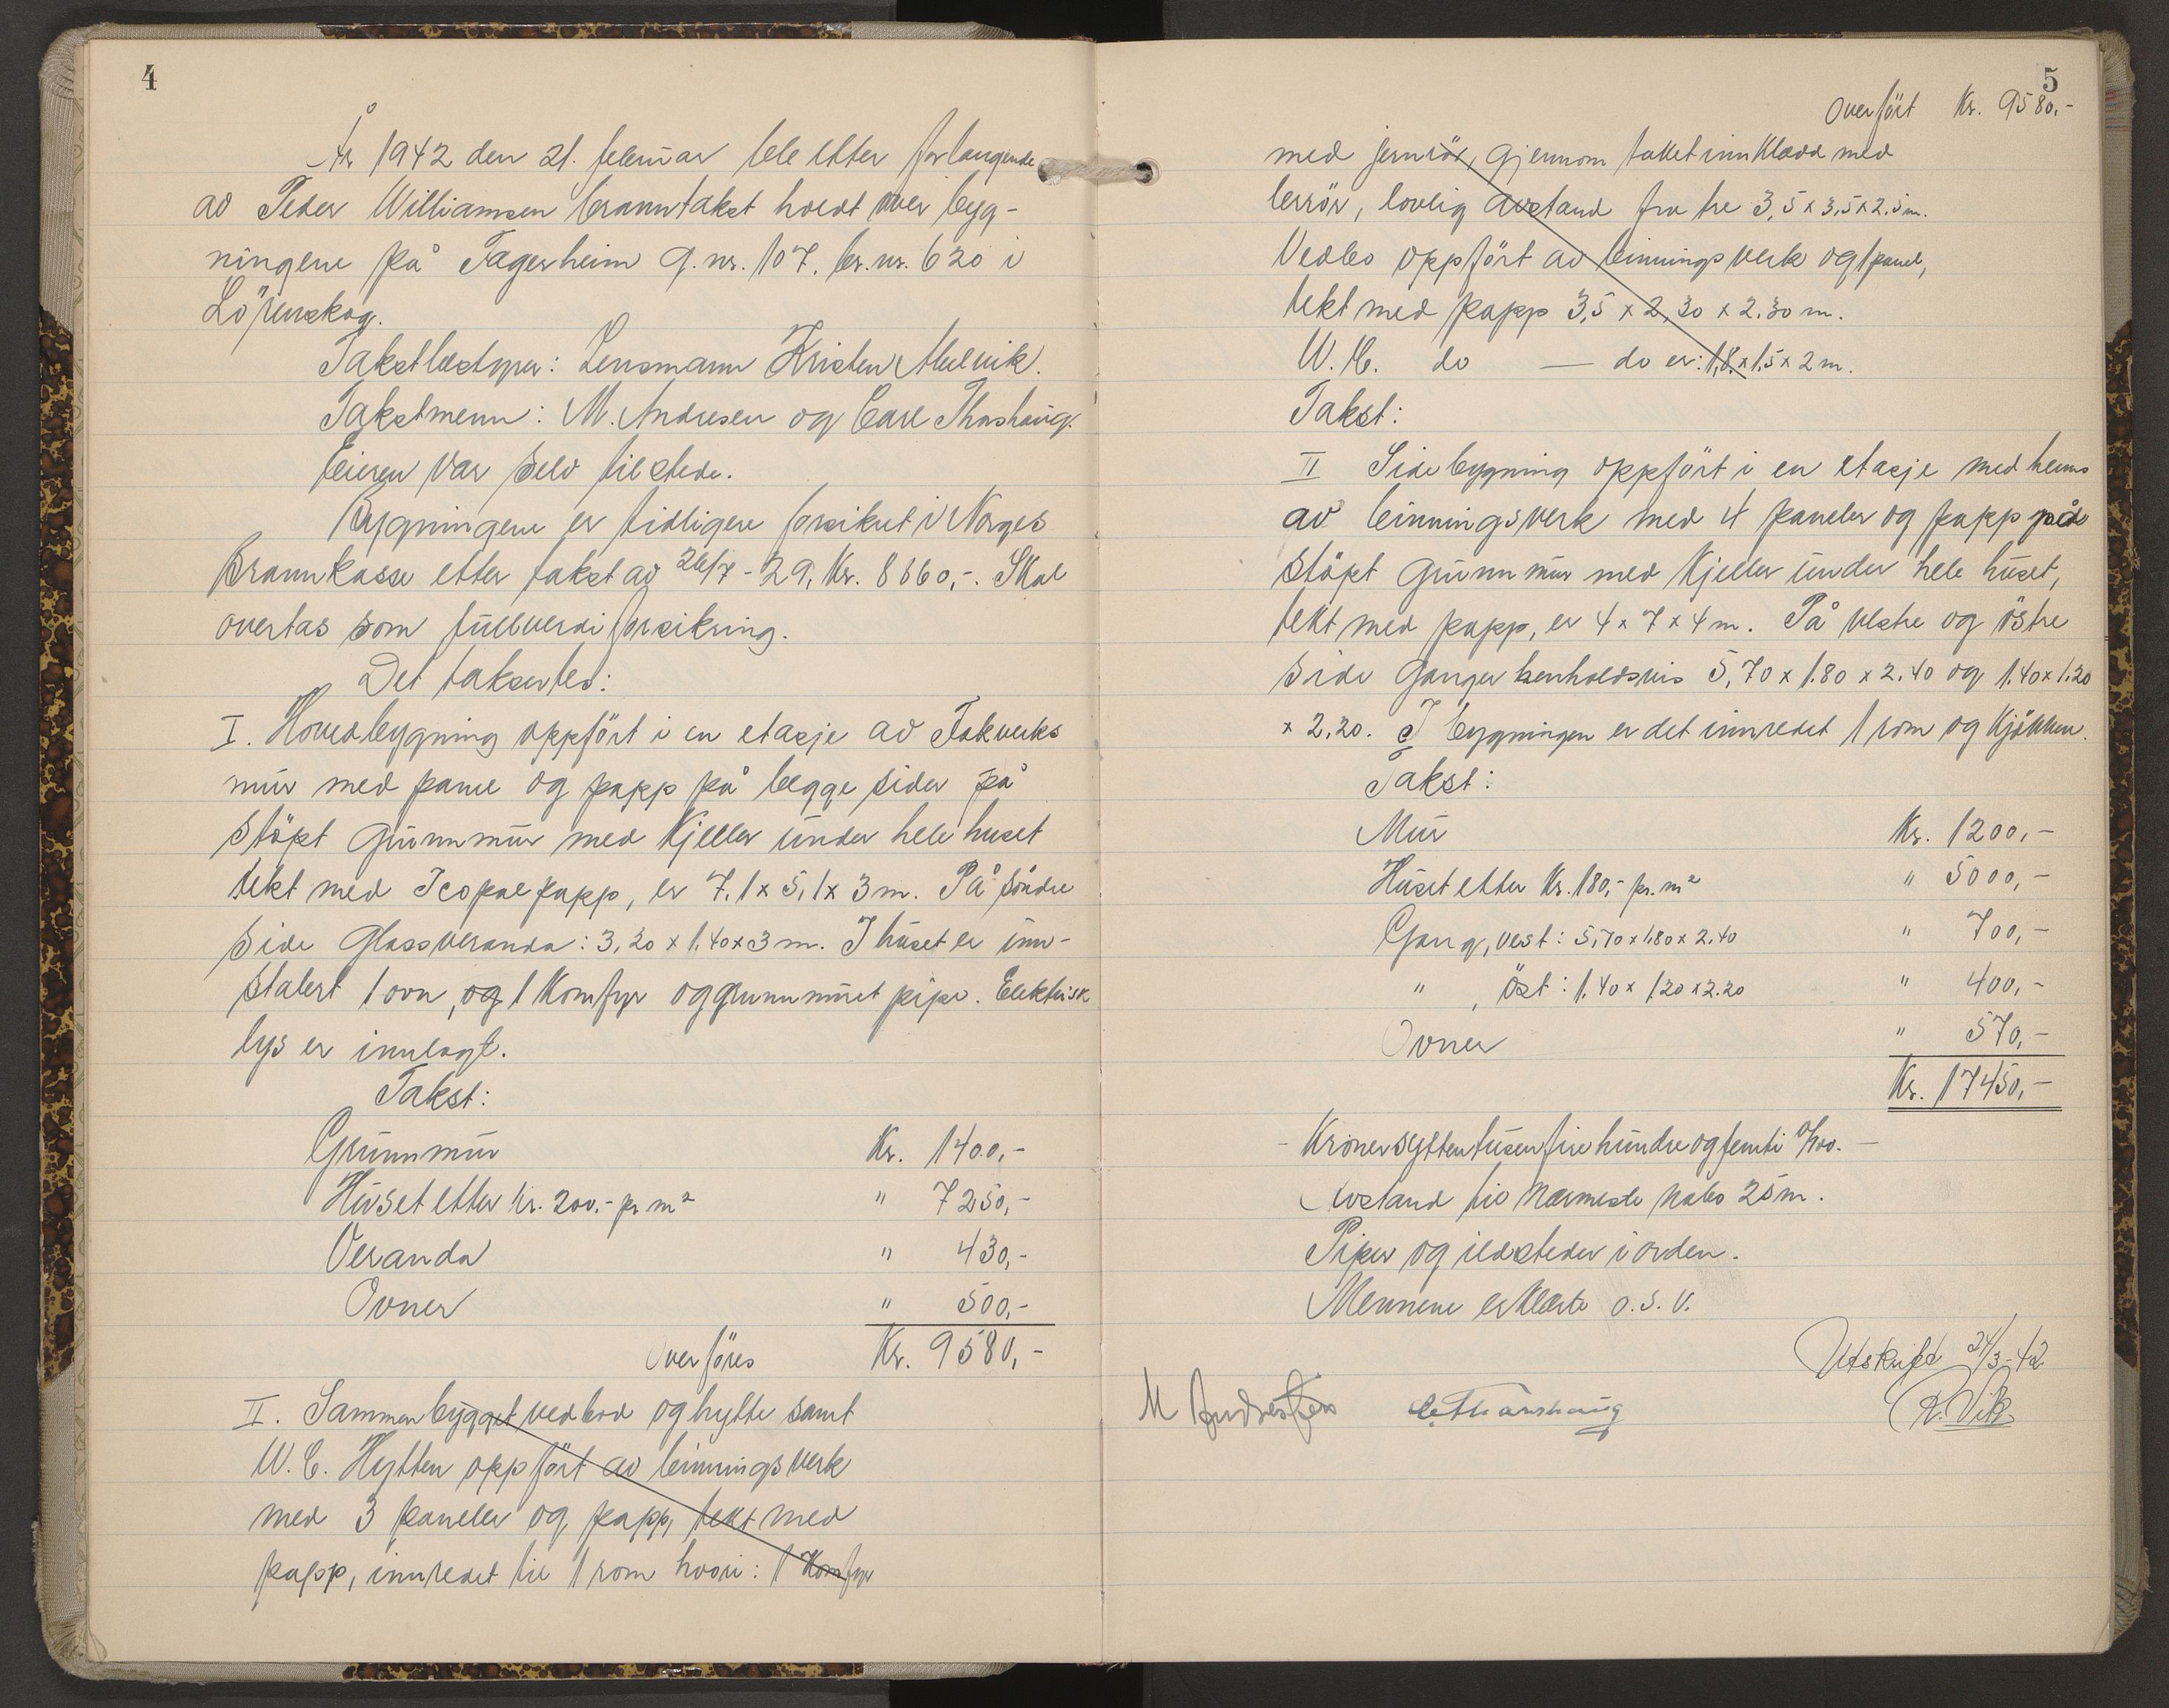 4
År 1942 den 21. februar ble etter forlangende
av Peder Williamsen branntakst holdt over byg-
ningene på Fagerheim g.nr. 107. br.nr. 620 i
Lörenskog.
Takstbestyrer: Lensmann Kristen Mulvik.
Takstmenn: M. Andresen og Carl Thoshaug.
Eieren var selv tilstede.
Bygningene er tidligere forsikret i Norges
Brannkasse etter takst av 26/7 - 29, Kr. 8860,-. Skal
overtas som fullverdiforsikring.
Det takseres:
I. Hovedbygning oppfört i en etasje av Fakverks
mur med panel og papp på begge sider på
stöpt grunnmur med kjeller under hele huset
tekt med Icopalpapp, er 7,1 x 5,1 x 3 m. På söndre
side glassveranda: 3,20 x 1,40 x 3 m. I huset er inn-
stalert 1 ovn, og 1 Komfyr og grunnmuret pipe. Elektrisk
lys er innlagt.
Takst:
Grunnmur Kr. 1400,-
Huset etter kr. 200,- pr m² " 7250,-
Veranda " 430,-
Ovner " 500,-
Overföres Kr. 9580,-
II. Sammenbygget vedbod og hytte samt
W.C. Hytten oppfört av binningsverk
med 3 paneler og papp, tekt med
papp, innredet til 1 rom hvori: 1 Komfyr
5
Overfört Kr. 9580,-
med jernrör, gjennom taket innkladd med
lerrör, lovlig avstand fra tre 3,5 x 3,5 x 2,5 m.
Vedbo oppfört av binningsverk og 1 panel,
tekt med papp 3,5 x 2,30 x 2,30 m.
W.C. do — do er: 1,8 x 1,5 x 2 m.
Takst:
II Sidebygning oppfört i en etasje med hems
av binningsverk med 4 paneler og papp på
stöpt grunnmur med kjeller under hele huset,
tekt med papp, er 4 x 7 x 4 m. På vestre og östre
side ganger henholdsvis 5,70 x 1.80 x 2.40 og 1.40 x 1.20
x 2,20. I bygningen er det innredet 1 rom og kjökken.
Takst:
Mur Kr. 1200,-
Huset etter Kr. 180,- pr. m² " 5000,-
Gang, vest: 5,70 x 1.80 x 2.40 " 700,-
" , öst: 1.40 x 1.20 x 2.20 " 400,-
Ovner " 570,-
Kr. 17450,-
- Kroner syttentusenfirehundreogfemti 0/100. -
Avstand til nærmeste nabo 25 m.
Piper og ildsteder i orden.
Mennene erklærte o.s.v.
Utskrift 24/3-42
M Andresen C. Thorshaug R. Vik